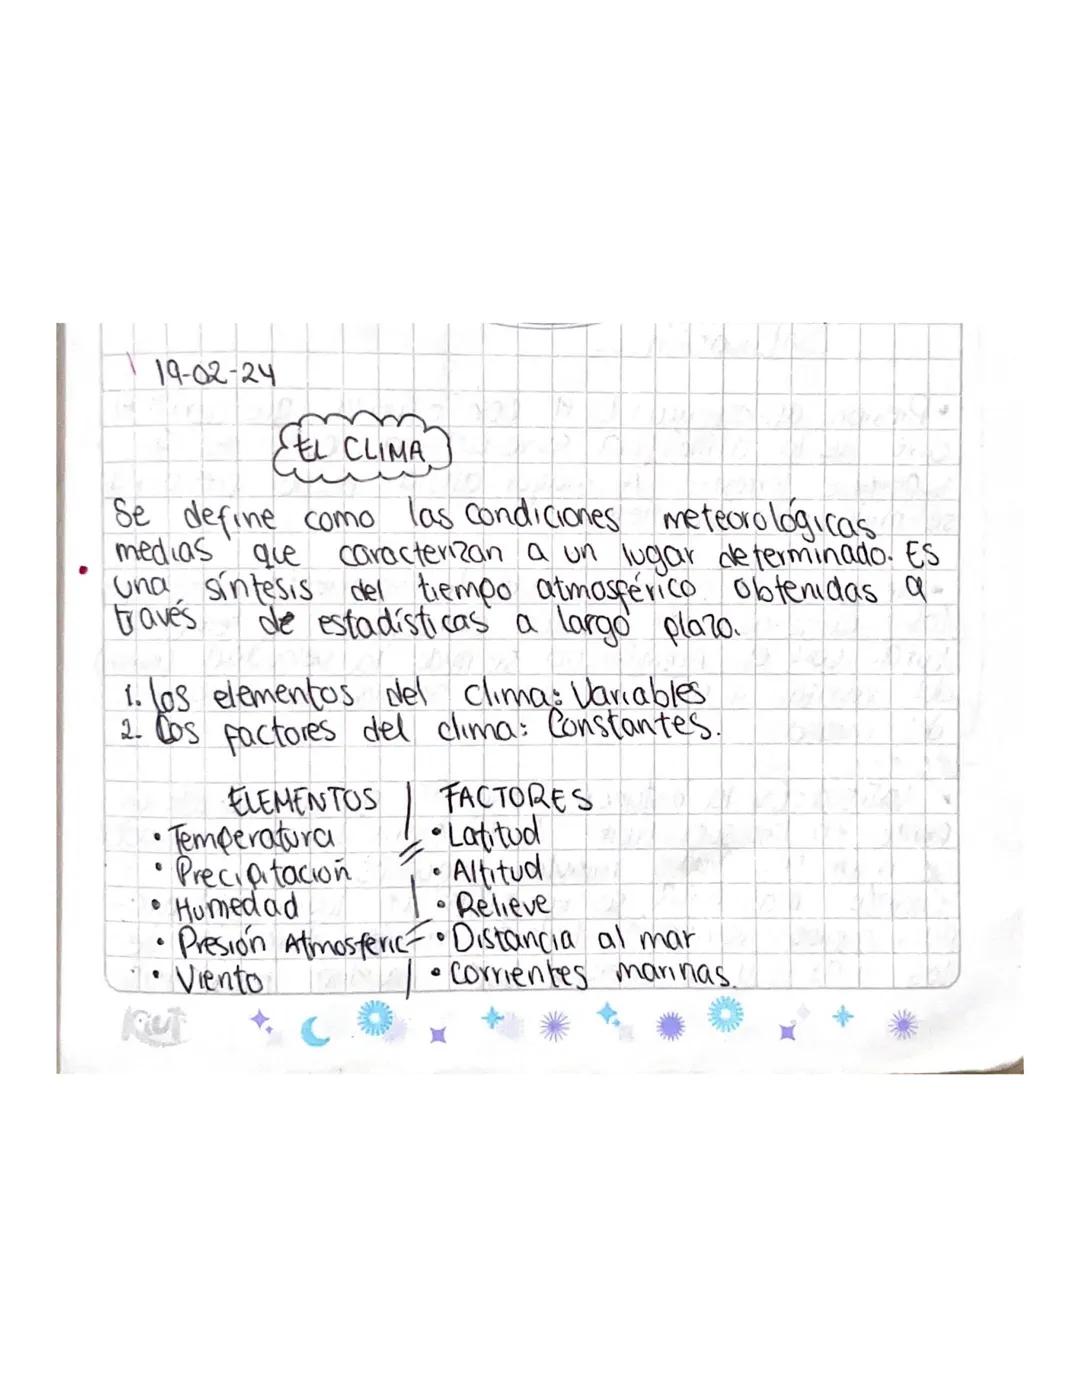 19-02-24
EL CLIMA
Se define como las condiciones meteorológicas
medias que caracterizan a un lugar determinado. Es
una síntesis del tiempo atmosférico obtenidas a
través de estadísticas a largo plazo.
1. Los elementos del clima: Variables
2. Los factores del clima: Constantes.
ELEMENTOS | FACTORES
• Temperatura • Latitud
• Precipitación • Altitud
• Humedad • Relieve
• Presión Atmosféric • Distancia al mar
• Viento • Corrientes marinas.
Kiut